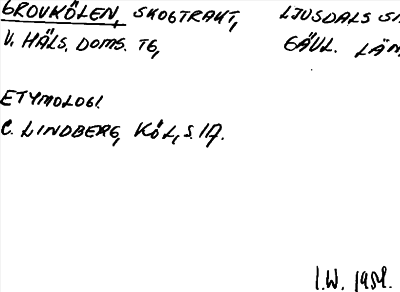 GROVKÖLEN, SKOGTRAKT, LJUSDALS
V. HÄLS. DOMS. TG, GÄVL. LÄN
ETYMOLOGI.
C. LINDBERG, KÖL, S. 17.
I.W. 1951.